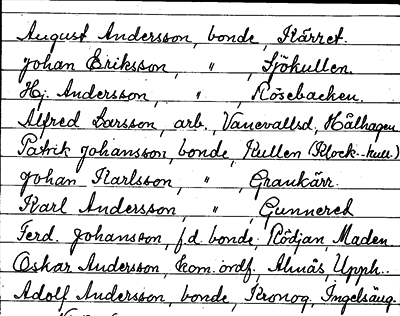 August Andersson, bonde, Kärret.
Johan Eriksson, " , Sjökullen.
Hj. Andersson, " , Rösebacken.
Alfred Larsson, arb., Vanevallsd, Hålhagen
Patrik Johansson, bonde, Kullen (Klock.-kull.)
Johan Karlsson, " , Grankärr.
Karl Andersson, " , Gunnered
Ferd. Johansson, f.d. bonde, Rödjan, Maden.
Oskar Andersson, kom. ordf., Almås Upph..
Adolf Andersson, bonde, Kronog. Ingelsäng.